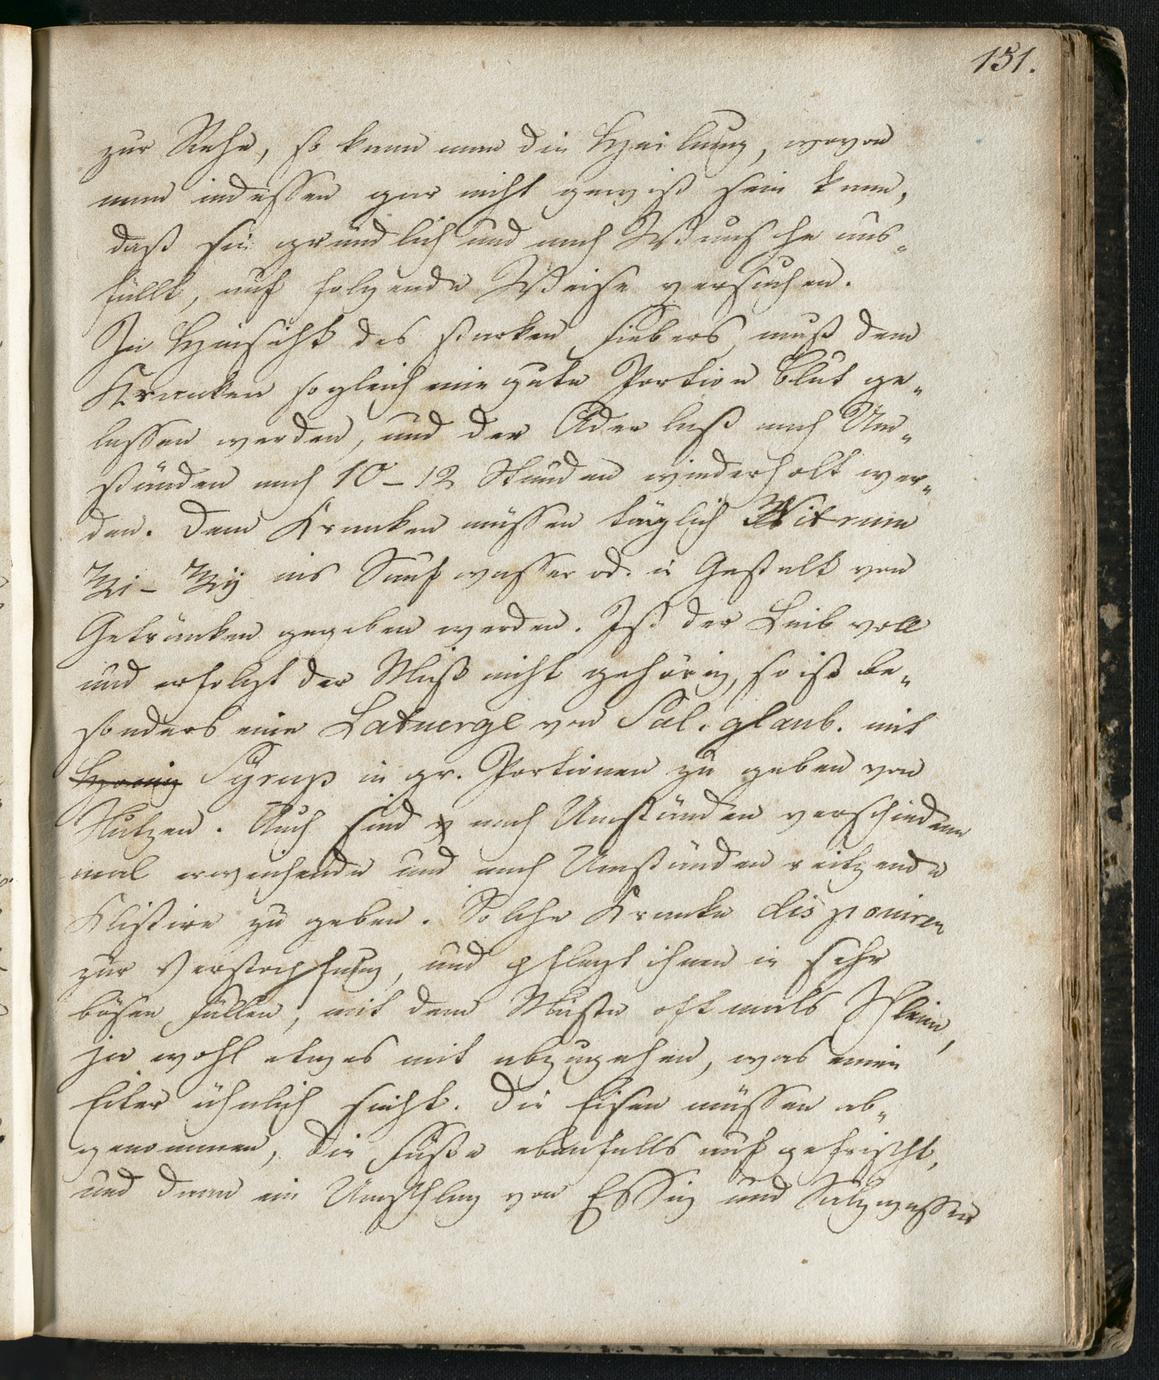 151.
zur Rehe, so kann man die Heilung, wovon
man indessen gar nicht gewiß sein kann,
daß sie gründlich und nach Wunsche aus-
fällt, auf folgende Weise versuchen.
In Hinsicht des starken Fiebers, muß dem
Kranken sogleich eine gute Portion Blut ge-
lassen werden, und der Aderlaß nach Um-
ständen nach 10-12 Stunden wiederholt wer-
den. Dem Kranken müssen täglich Nitrum
℥i - ℥ij ins Saufwasser od. in Gestalt von
Getränken gegeben werden. Ist der Leib voll
und erfolgt der Mist nicht gehörig, so ist be-
sonders eine Latwerge von Sal. glaub. mit
Honig Syrup in gr. Portionen zu geben von
Nutzen. Auch sind nach Umständen verschiedene
mal erweichende und nach Umständen reitzende
Klistire zu geben. Solche Kranke disponiren
zur Verstopfung, und pflegt ihnen in sehr
bösen Fällen, mit dem Miste oftmals Schleim,
ja wohl etwas mit abzugehen, was einen
Eiter ähnlich sieht. Die Eisen müssen ab-
genommen, die Füße ebenfalls aufgefrischt,
und dann ein Umschlag von Essig und Salzwasser